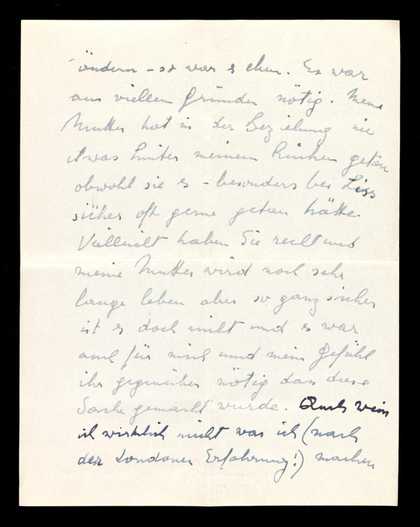 ändern - so war es eben. Es war
aus vielen Gründen nötig. Meine
Mutter hat in der Beziehung nie
etwas hinter meinem Rücken getan
obwohl sie es - besonders bei Liss
sicher oft gerne getan hätte.
Vielleicht haben Sie recht und
meine Mutter wird noch sehr
lange leben aber so ganz sicher
ist es doch nicht und es war
auch für mich und mein Gefühl
ihr gegenüber nötig dass diese
Sache gemacht wurde. Auch
ich wirklich nicht was ich (nach
der Londoner Erfahrung!) machen